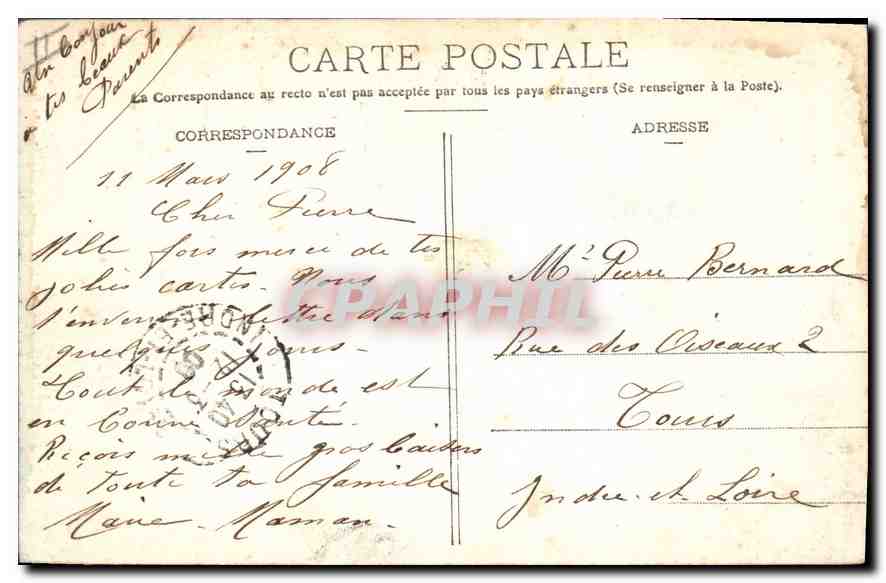 Un bonjour
à tes beaux
Parents
CARTE POSTALE
La Correspondance au recto n'est pas acceptée par tous les pays étrangers (Se renseigner à la Poste).
CORRESPONDANCE
11 Mars 1908
Cher Pierre
Mille fois merci de tes
jolies cartes. Nous
t'enverrons lettre dans
quelques jours.
Tout le monde est
en bonne santé.
Reçois mille gros baisers
de toute ta famille
Marie-Maman.
ADRESSE
Mr Pierre Bernard
Rue des Oiseaux 2
Tours
Indre-et-Loire
CPAPHIL
TOURS
INDRE-ET-LOIRE